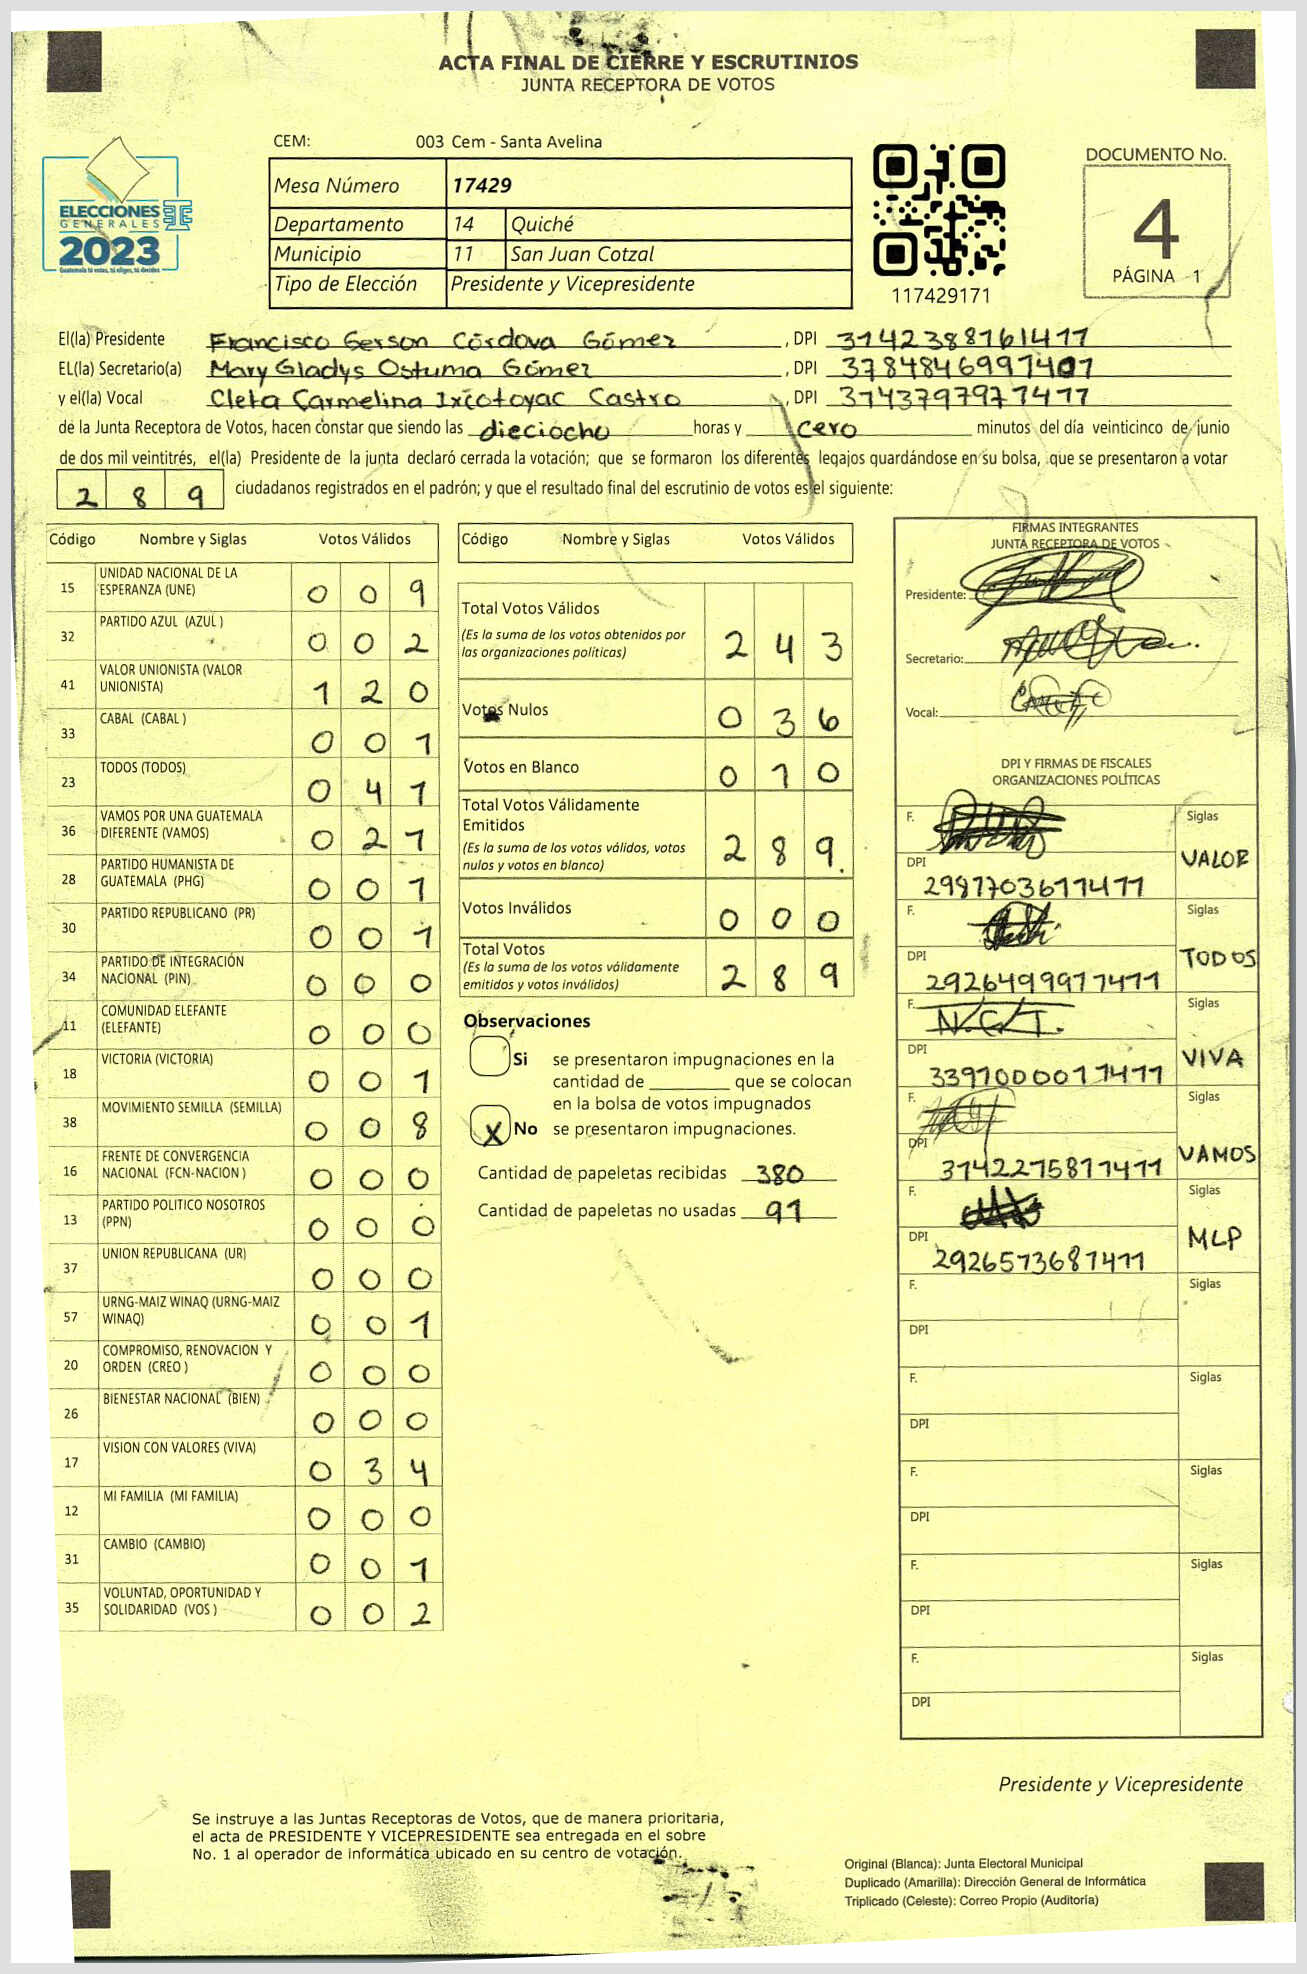 ACTA FINAL DE CIERRE Y ESCRUTINIOS
JUNTA RECEPTORA DE VOTOS
CEM: 003 Cem - Santa Avelina
Mesa Número 17429
Departamento 14 Quiché
Municipio 11 San Juan Cotzal
Tipo de Elección Presidente y Vicepresidente
ELECCIONES
GENERALES
2023
Guatemala tú votas, tú eliges, tú decides
117429171
DOCUMENTO No.
4
PÁGINA 1
El(la) Presidente Francisco Gerson Córdova Gómez, DPI 3142388161411
EL(la) Secretario(a) Mary Gladys Ostuma Gómez, DPI 3784846991401
y el(la) Vocal Cleta Carmelina Ixcotoyac Castro, DPI 3143797971411
de la Junta Receptora de Votos, hacen constar que siendo las dieciocho horas y cero minutos del día veinticinco de junio
de dos mil veintitrés, el(la) Presidente de la junta declaró cerrada la votación; que se formaron los diferentes legajos guardándose en su bolsa, que se presentaron a votar
289 ciudadanos registrados en el padrón; y que el resultado final del escrutinio de votos es el siguiente:
Código Nombre y Siglas Votos Válidos
15 UNIDAD NACIONAL DE LA ESPERANZA (UNE) 0 0 9
32 PARTIDO AZUL (AZUL ) 0 0 2
41 VALOR UNIONISTA (VALOR UNIONISTA) 1 2 0
33 CABAL (CABAL ) 0 0 1
23 TODOS (TODOS) 0 4 1
36 VAMOS POR UNA GUATEMALA DIFERENTE (VAMOS) 0 2 1
28 PARTIDO HUMANISTA DE GUATEMALA (PHG) 0 0 1
30 PARTIDO REPUBLICANO (PR) 0 0 1
34 PARTIDO DE INTEGRACIÓN NACIONAL (PIN) 0 0 0
11 COMUNIDAD ELEFANTE (ELEFANTE) 0 0 0
18 VICTORIA (VICTORIA) 0 0 1
38 MOVIMIENTO SEMILLA (SEMILLA) 0 0 8
16 FRENTE DE CONVERGENCIA NACIONAL (FCN-NACION ) 0 0 0
13 PARTIDO POLITICO NOSOTROS (PPN) 0 0 0
37 UNION REPUBLICANA (UR) 0 0 0
57 URNG-MAIZ WINAQ (URNG-MAIZ WINAQ) 0 0 1
20 COMPROMISO, RENOVACION Y ORDEN (CREO ) 0 0 0
26 BIENESTAR NACIONAL (BIEN) 0 0 0
17 VISION CON VALORES (VIVA) 0 3 4
12 MI FAMILIA (MI FAMILIA) 0 0 0
31 CAMBIO (CAMBIO) 0 0 1
35 VOLUNTAD, OPORTUNIDAD Y SOLIDARIDAD (VOS ) 0 0 2
Código Nombre y Siglas Votos Válidos
Total Votos Válidos 2 4 3
(Es la suma de los votos obtenidos por
las organizaciones politicas)
Votos Nulos 0 3 6
Votos en Blanco 0 1 0
Total Votos Válidamente
Emitidos
(Es la suma de los votos válidos, votos
nulos y votos en blanco) 2 8 9.
Votos Inválidos 0 0 0
Total Votos
(Es la suma de los votos válidamente
emitidos y votos inválidos) 2 8 9
Observaciones
Si se presentaron impugnaciones en la
cantidad de ________ que se colocan
en la bolsa de votos impugnados
X No se presentaron impugnaciones.
Cantidad de papeletas recibidas 380
Cantidad de papeletas no usadas 91
FIRMAS INTEGRANTES
JUNTA RECEPTORA DE VOTOS
Presidente:
Secretario:
Vocal:
DPI Y FIRMAS DE FISCALES
ORGANIZACIONES POLÍTICAS
F. Siglas
DPI 2981703611411 VALOR
F. Siglas
DPI 2926499911411 TODOS
F. N.C.T. Siglas
DPI 3391000011411 VIVA
F. Siglas
DPI 3142275811411 VAMOS
F. Siglas
DPI 2926573681411 MLP
F. Siglas
DPI
F. Siglas
DPI
F. Siglas
DPI
F. Siglas
DPI
F. Siglas
DPI
Presidente y Vicepresidente
Se instruye a las Juntas Receptoras de Votos, que de manera prioritaria,
el acta de PRESIDENTE Y VICEPRESIDENTE sea entregada en el sobre
No. 1 al operador de informática ubicado en su centro de votación.
Original (Blanca): Junta Electoral Municipal
Duplicado (Amarilla): Dirección General de Informática
Triplicado (Celeste): Correo Propio (Auditoría)